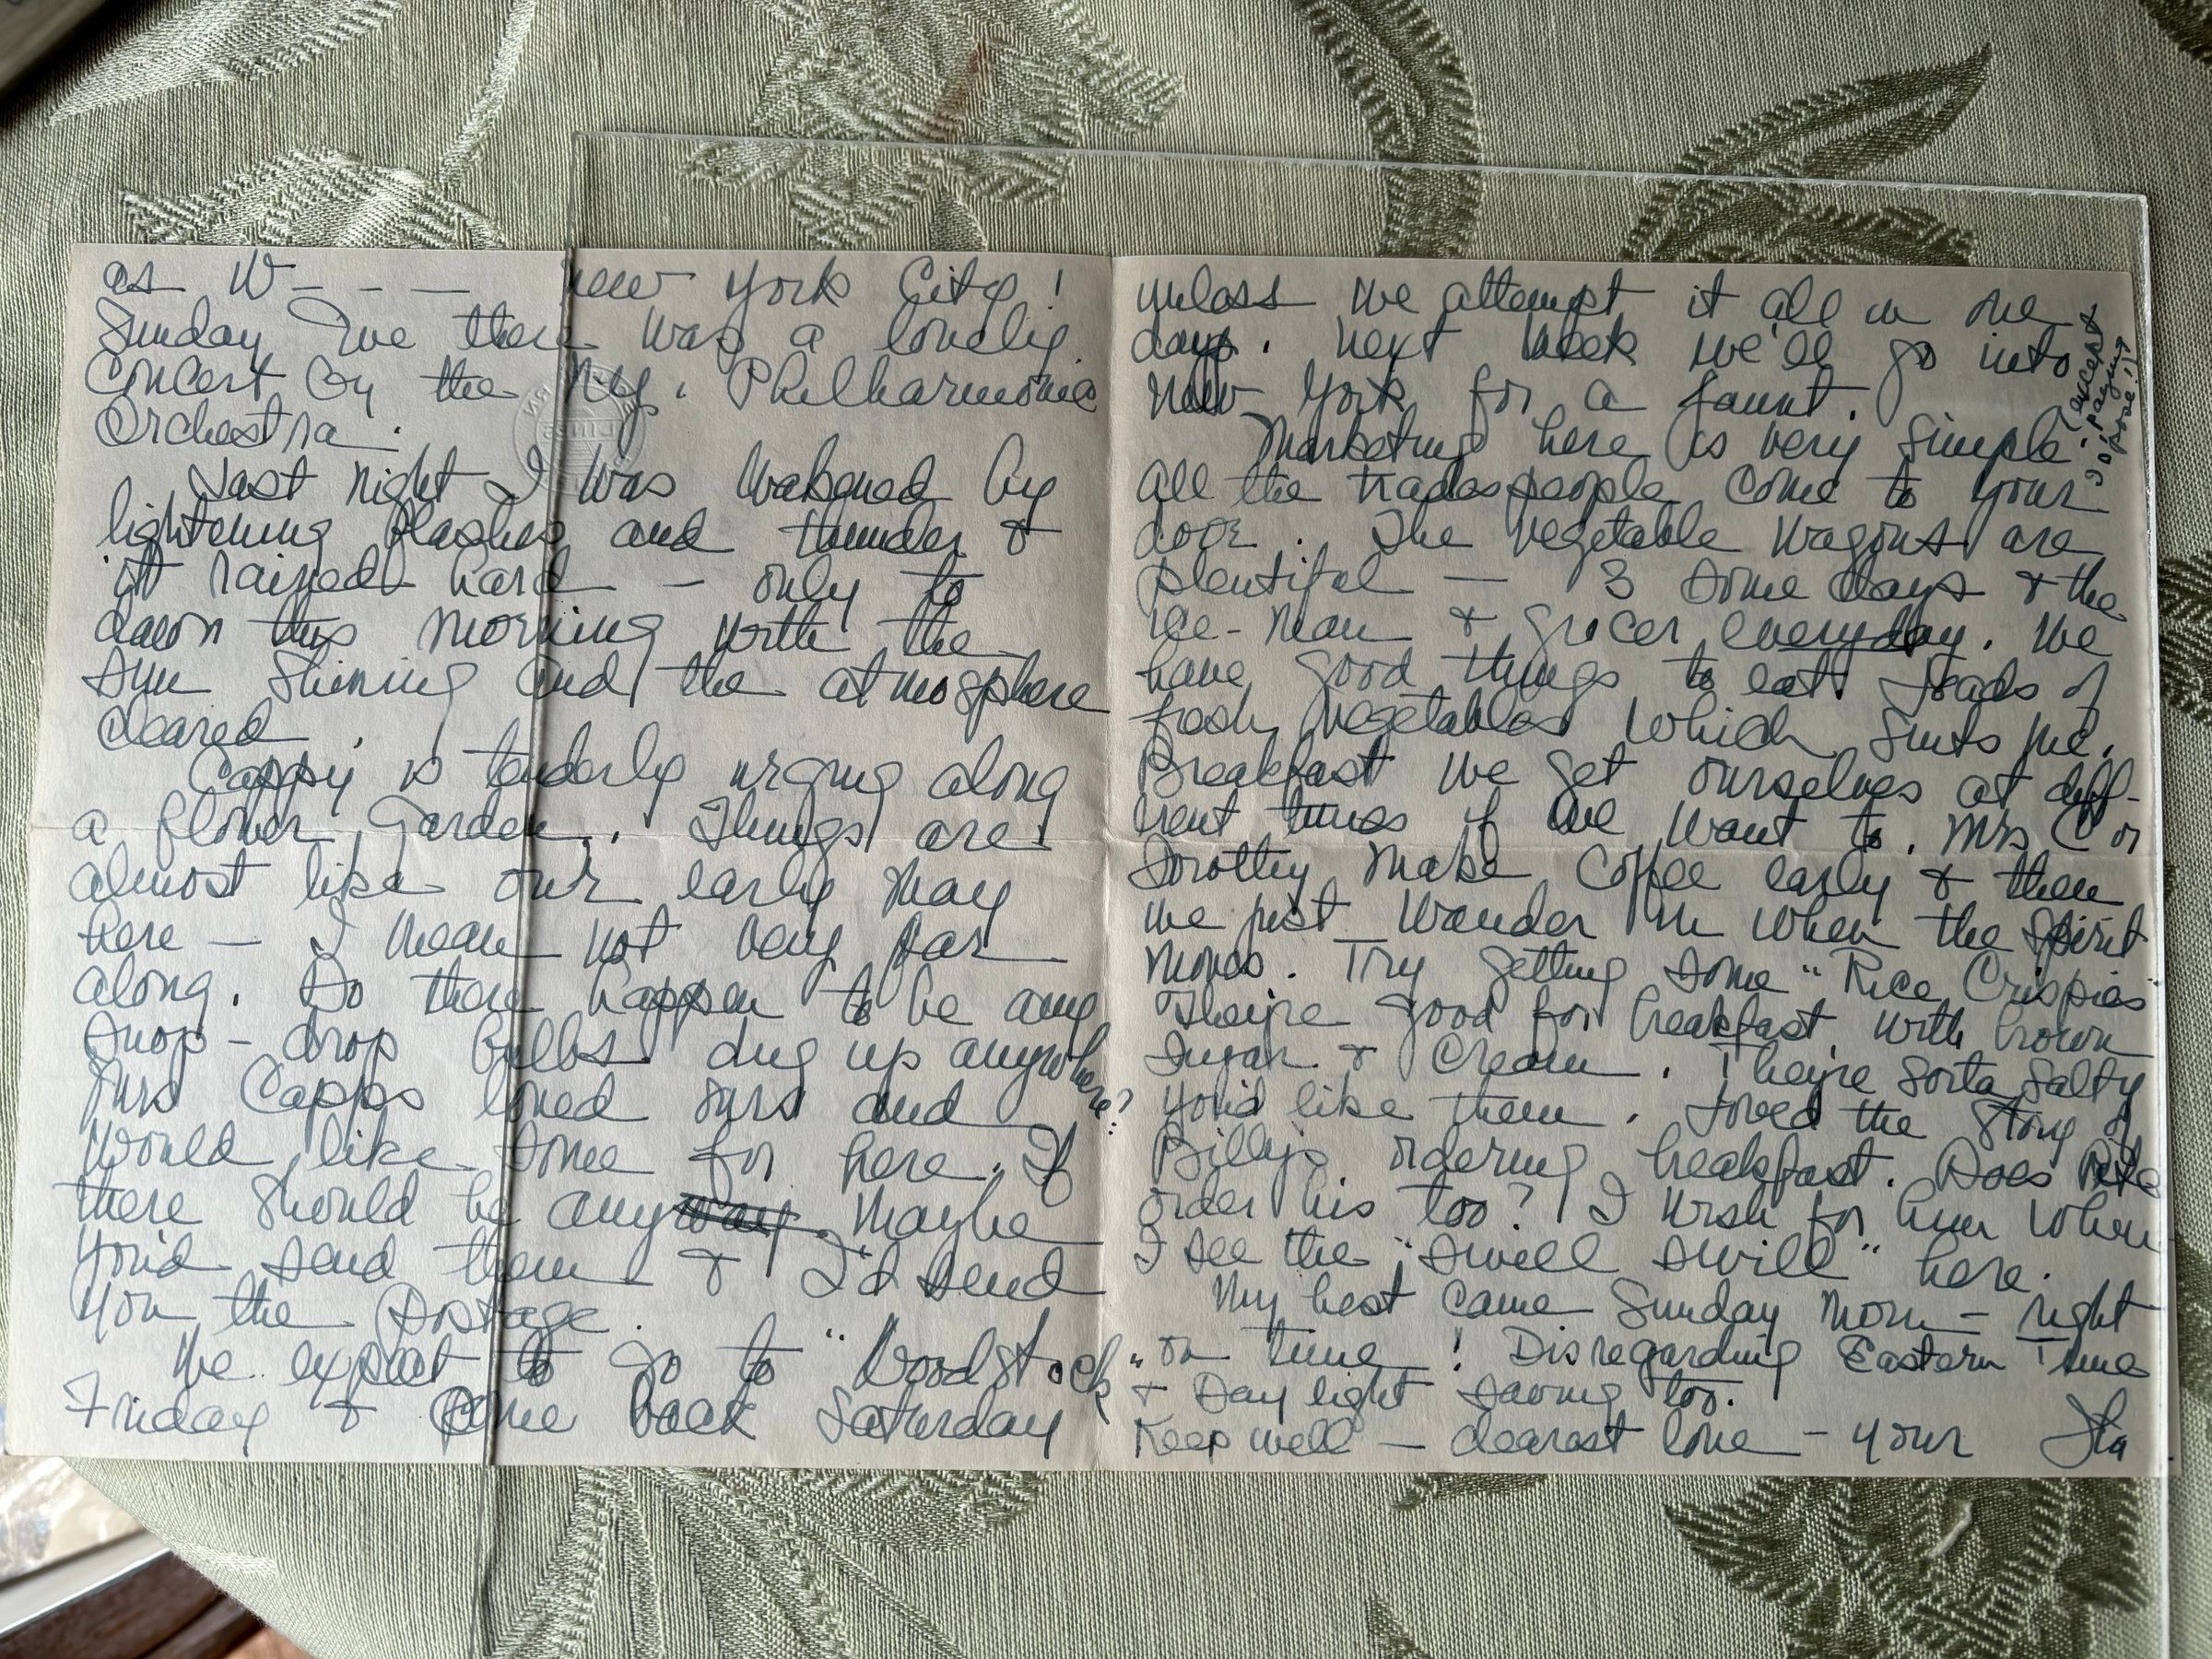 as W - - - New York City!
Sunday Eve there was a lovely
concert by the N.Y. Philharmonic
Orchestra.
Last night I was wakened by
lightening flashes and thunder &
it rained hard — only to
dawn this morning with the
sun shining and the atmosphere
cleared.
Cappy is tenderly urging along
a flower garden. Things are
almost like our early May
here — I mean not very far
along. Do there happen to be any
snop-drop bulbs dug up anywhere?
Mrs Capps loved ours and
would like some for here. If
there should be any maybe
you'd send them & I'd send
you the postage.
We expect to go to "Woodstock"
Friday & come back Saturday
unless we attempt it all in one
day. Next week we'll go into
New York for a jaunt.
Marketing here is very simple
(except
paying
for
all the tradespeople come to your
door. The vegetable wagons are
plentiful — 3 some days & the
ice-man & grocer everyday. We
have good things to eat. Loads of
fresh vegetables which suits me.
Breakfast we get ourselves at diff-
rent times if we want to. Mrs C or
Dorothy make coffee early & then
we just wander in when the spirit
moves. Try getting some "Rice Crispies"
They're good for breakfast with brown
sugar & cream. They're sorta salty
you'd like them. Loved the story of
Billy's ordering breakfast. Does Pete
order his too? I wish for him when
I see the "swell swill" here.
My best came Sunday morn — right
"on time"! Disregarding Eastern Time
& Day light saving too.
Keep well — dearest love — your